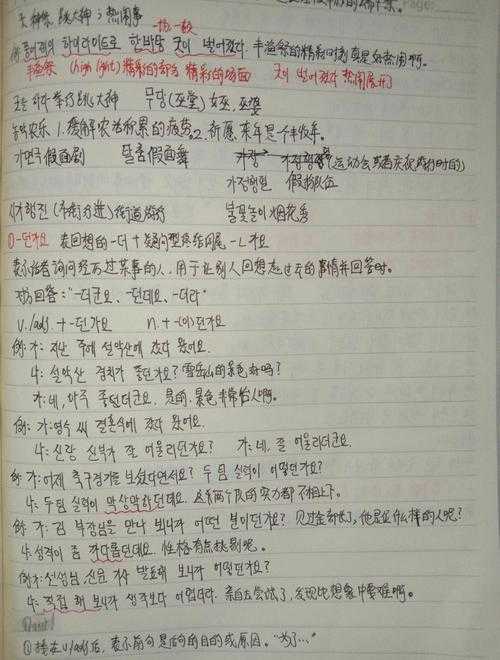 大神祭 跳大神 热闹事
一场、一般
例 풍어제의 하이라이트로 한바탕 굿이 벌어졌다. 丰渔祭的精彩时刻真是好热闹啊。
丰渔祭 (high light) 精彩的部分 精彩的场面 굿이 벌어졌다 热闹展开
굿을 하다 举行跳大神 무당(巫堂) 女巫,巫婆
농악 农乐 1.缓解农活积累的疲劳 2.祈愿来年是个丰收年。
가면극 假面剧 탈춤 假面舞 (运动会或者庆祝游行时的)
가장행렬 假扮队伍
시가행진 (市街行进) 街道游行 불꽃놀이 烟花秀
① -던가요 表回想的 -더 + 疑问型终结词尾 -ㄴ가요
表示话者询问经历过某事的人,用于让别人回想起过去的事情并回答时。
对方回答:"-더군요、-던데요、-더라"
v./adj. + -던가요 n. + -(이)던가요
例: 가: 지난 주에 설악산에 갔다 왔어요.
나: 설악산 경치가 좋던가요? 雪岳山的景色好吗?
가: 네, 아주 좋던데군요. 是的,景色非常怡人啊。
例: 가: 영수 씨 결혼식에 갔다 왔어요.
나: 신랑 신부가 잘 어울리던가요? 가: 네, 잘 어울리더군요.
例 가: 어제 축구경기를 보셨다면서요? 두 팀 실력이 어떻던가요?
나: 두 팀 실력이 막상막하던데요. 这两个队的实力都不相上下。
例 가: 김 부장님을 만나 보니까 어떤 분이던가요? 见过金部长了,他是位什么样的人呢?
나: 성격이 좀 까다롭던데요. 性格有点挑剔呢。
例 가: 선생님, 신문 기사 발표해 보니까 어떻던가요?
나: 직접 해 보니까 생각보다 어렵더라. 亲自去尝试了,发现比想象中要难啊。
① 接在v/adj后,表示前句是后句的目的或原因。"为了…"